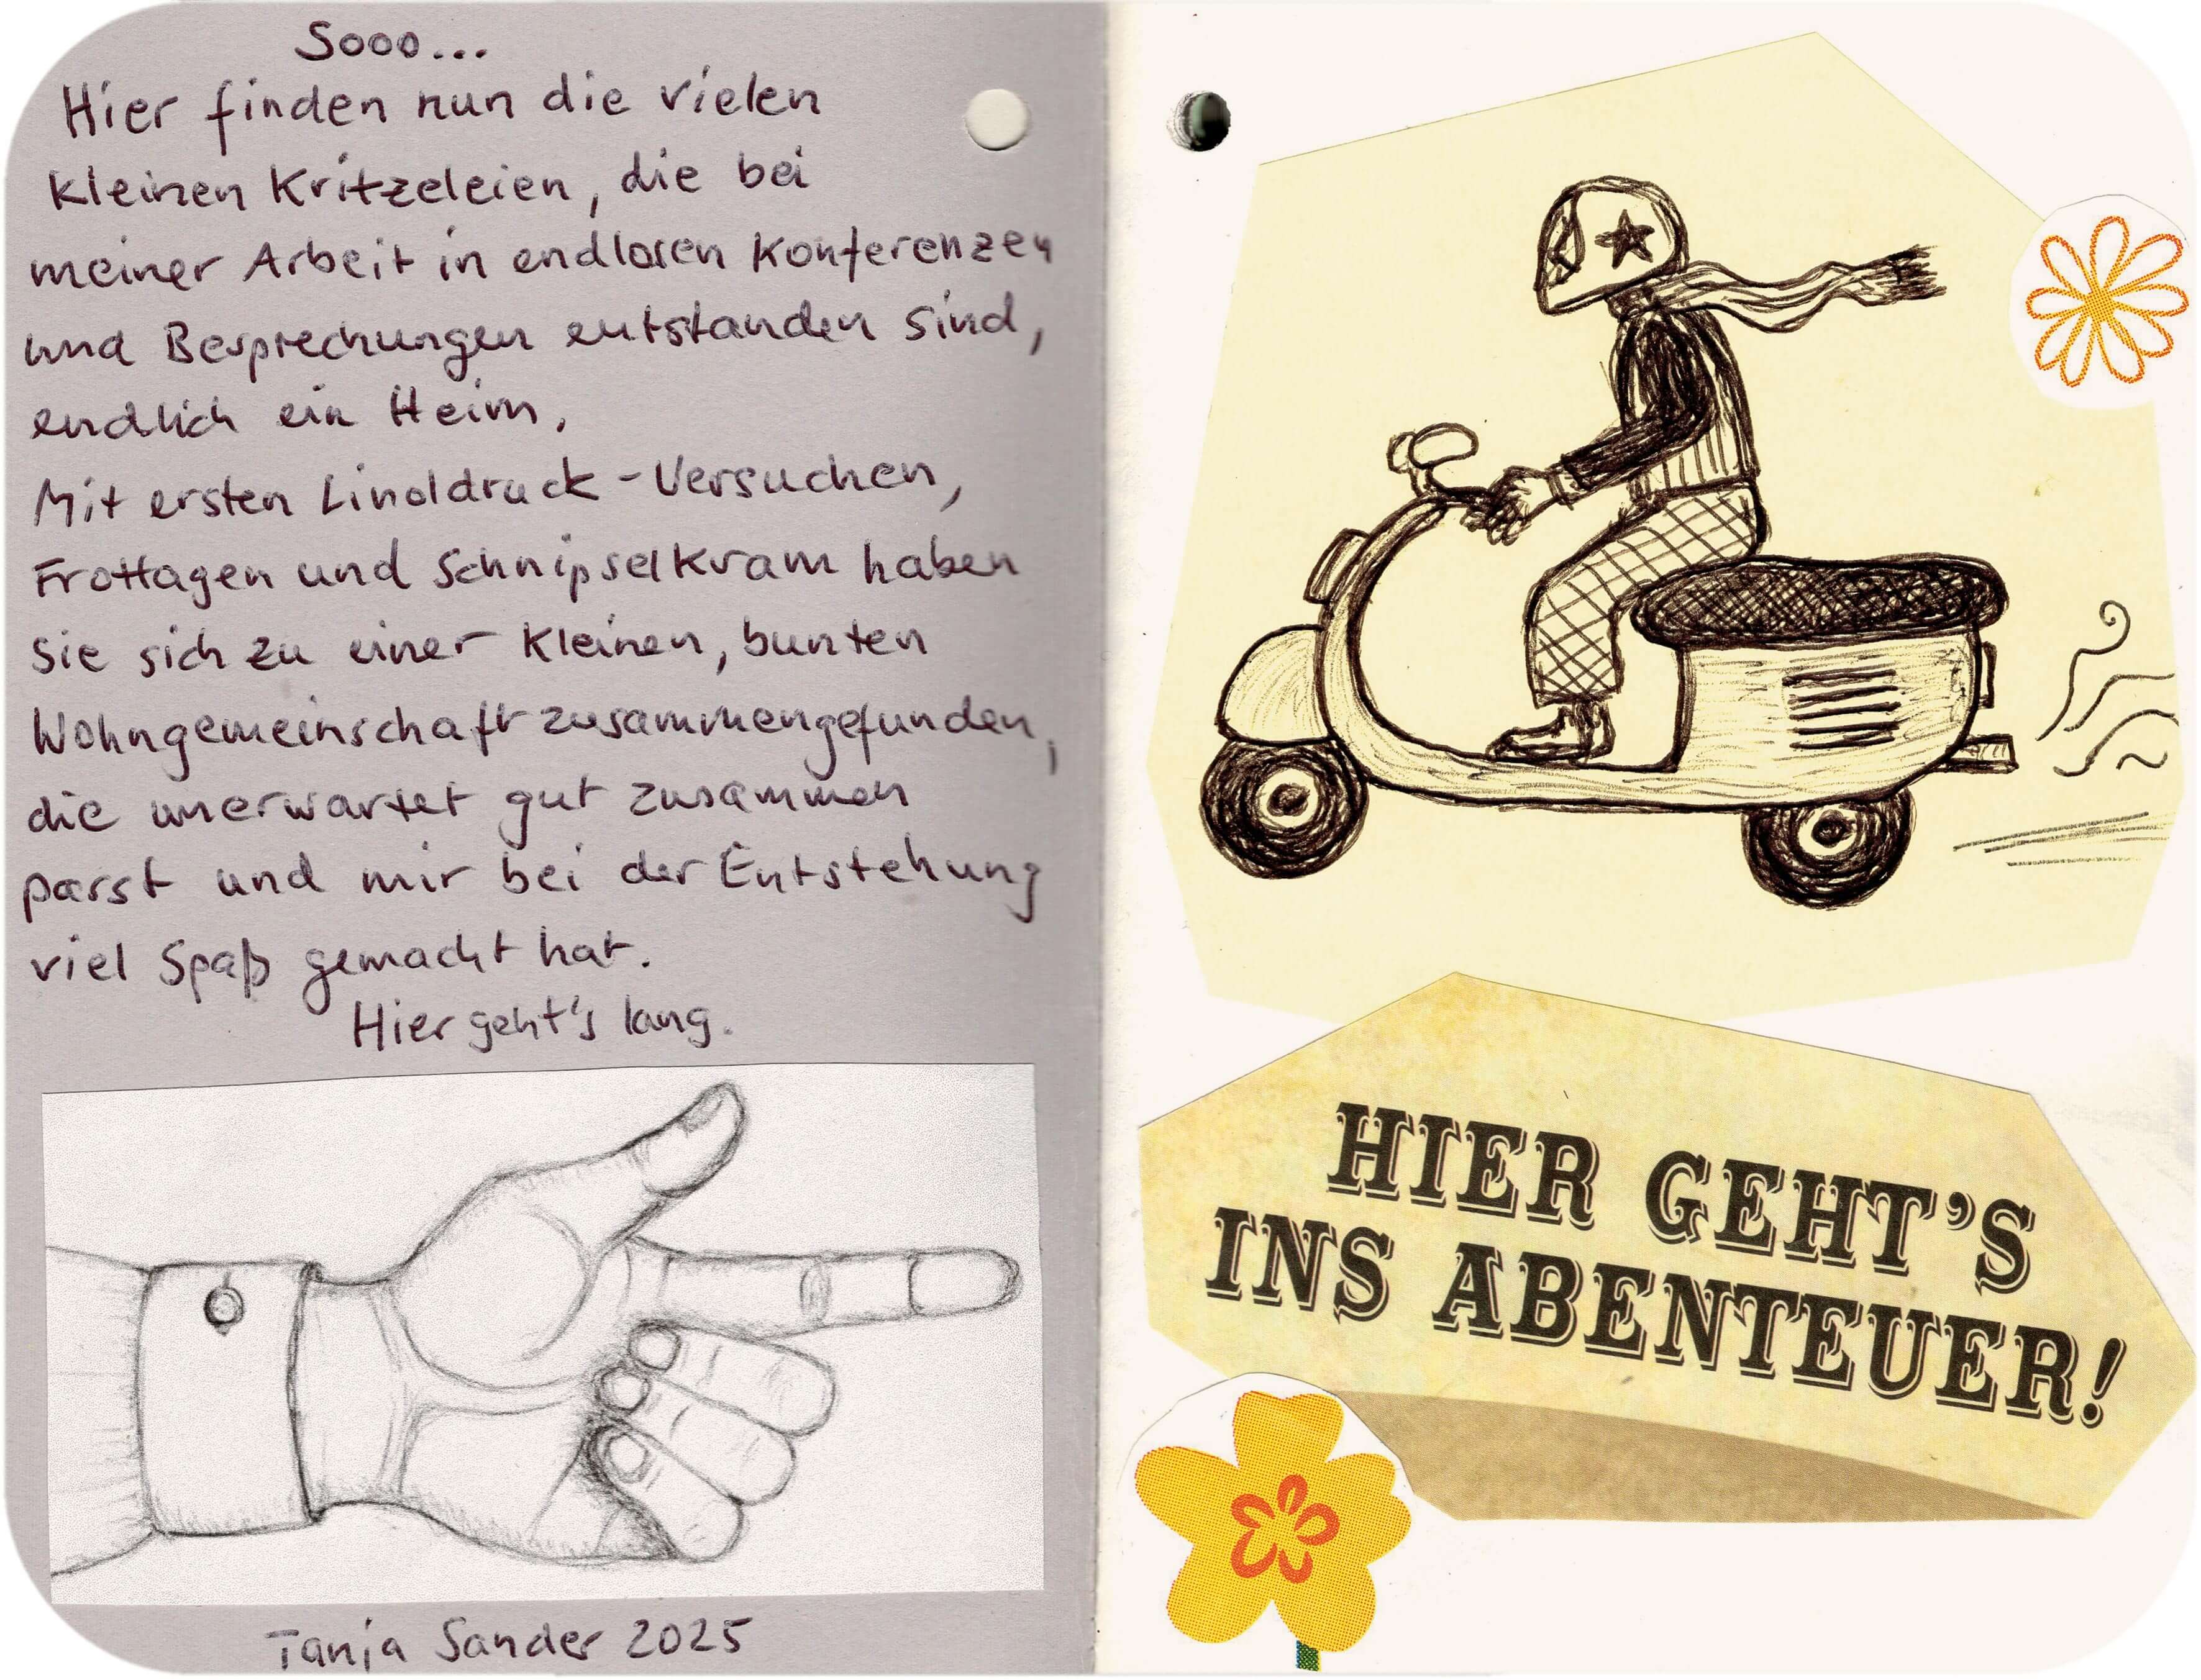 Sooo...
Hier finden nun die vielen
kleinen Kritzeleien, die bei
meiner Arbeit in endlosen Konferenzen
und Besprechungen entstanden sind,
endlich ein Heim.
Mit ersten Linoldruck-Versuchen,
Frottagen und Schnipselkram haben
sie sich zu einer kleinen, bunten
Wohngemeinschaft zusammengefunden,
die unerwartet gut zusammen
passt und mir bei der Entstehung
viel Spaß gemacht hat.
Hier geht's lang.
Tanja Sander 2025
HIER GEHT'S
INS ABENTEUER!